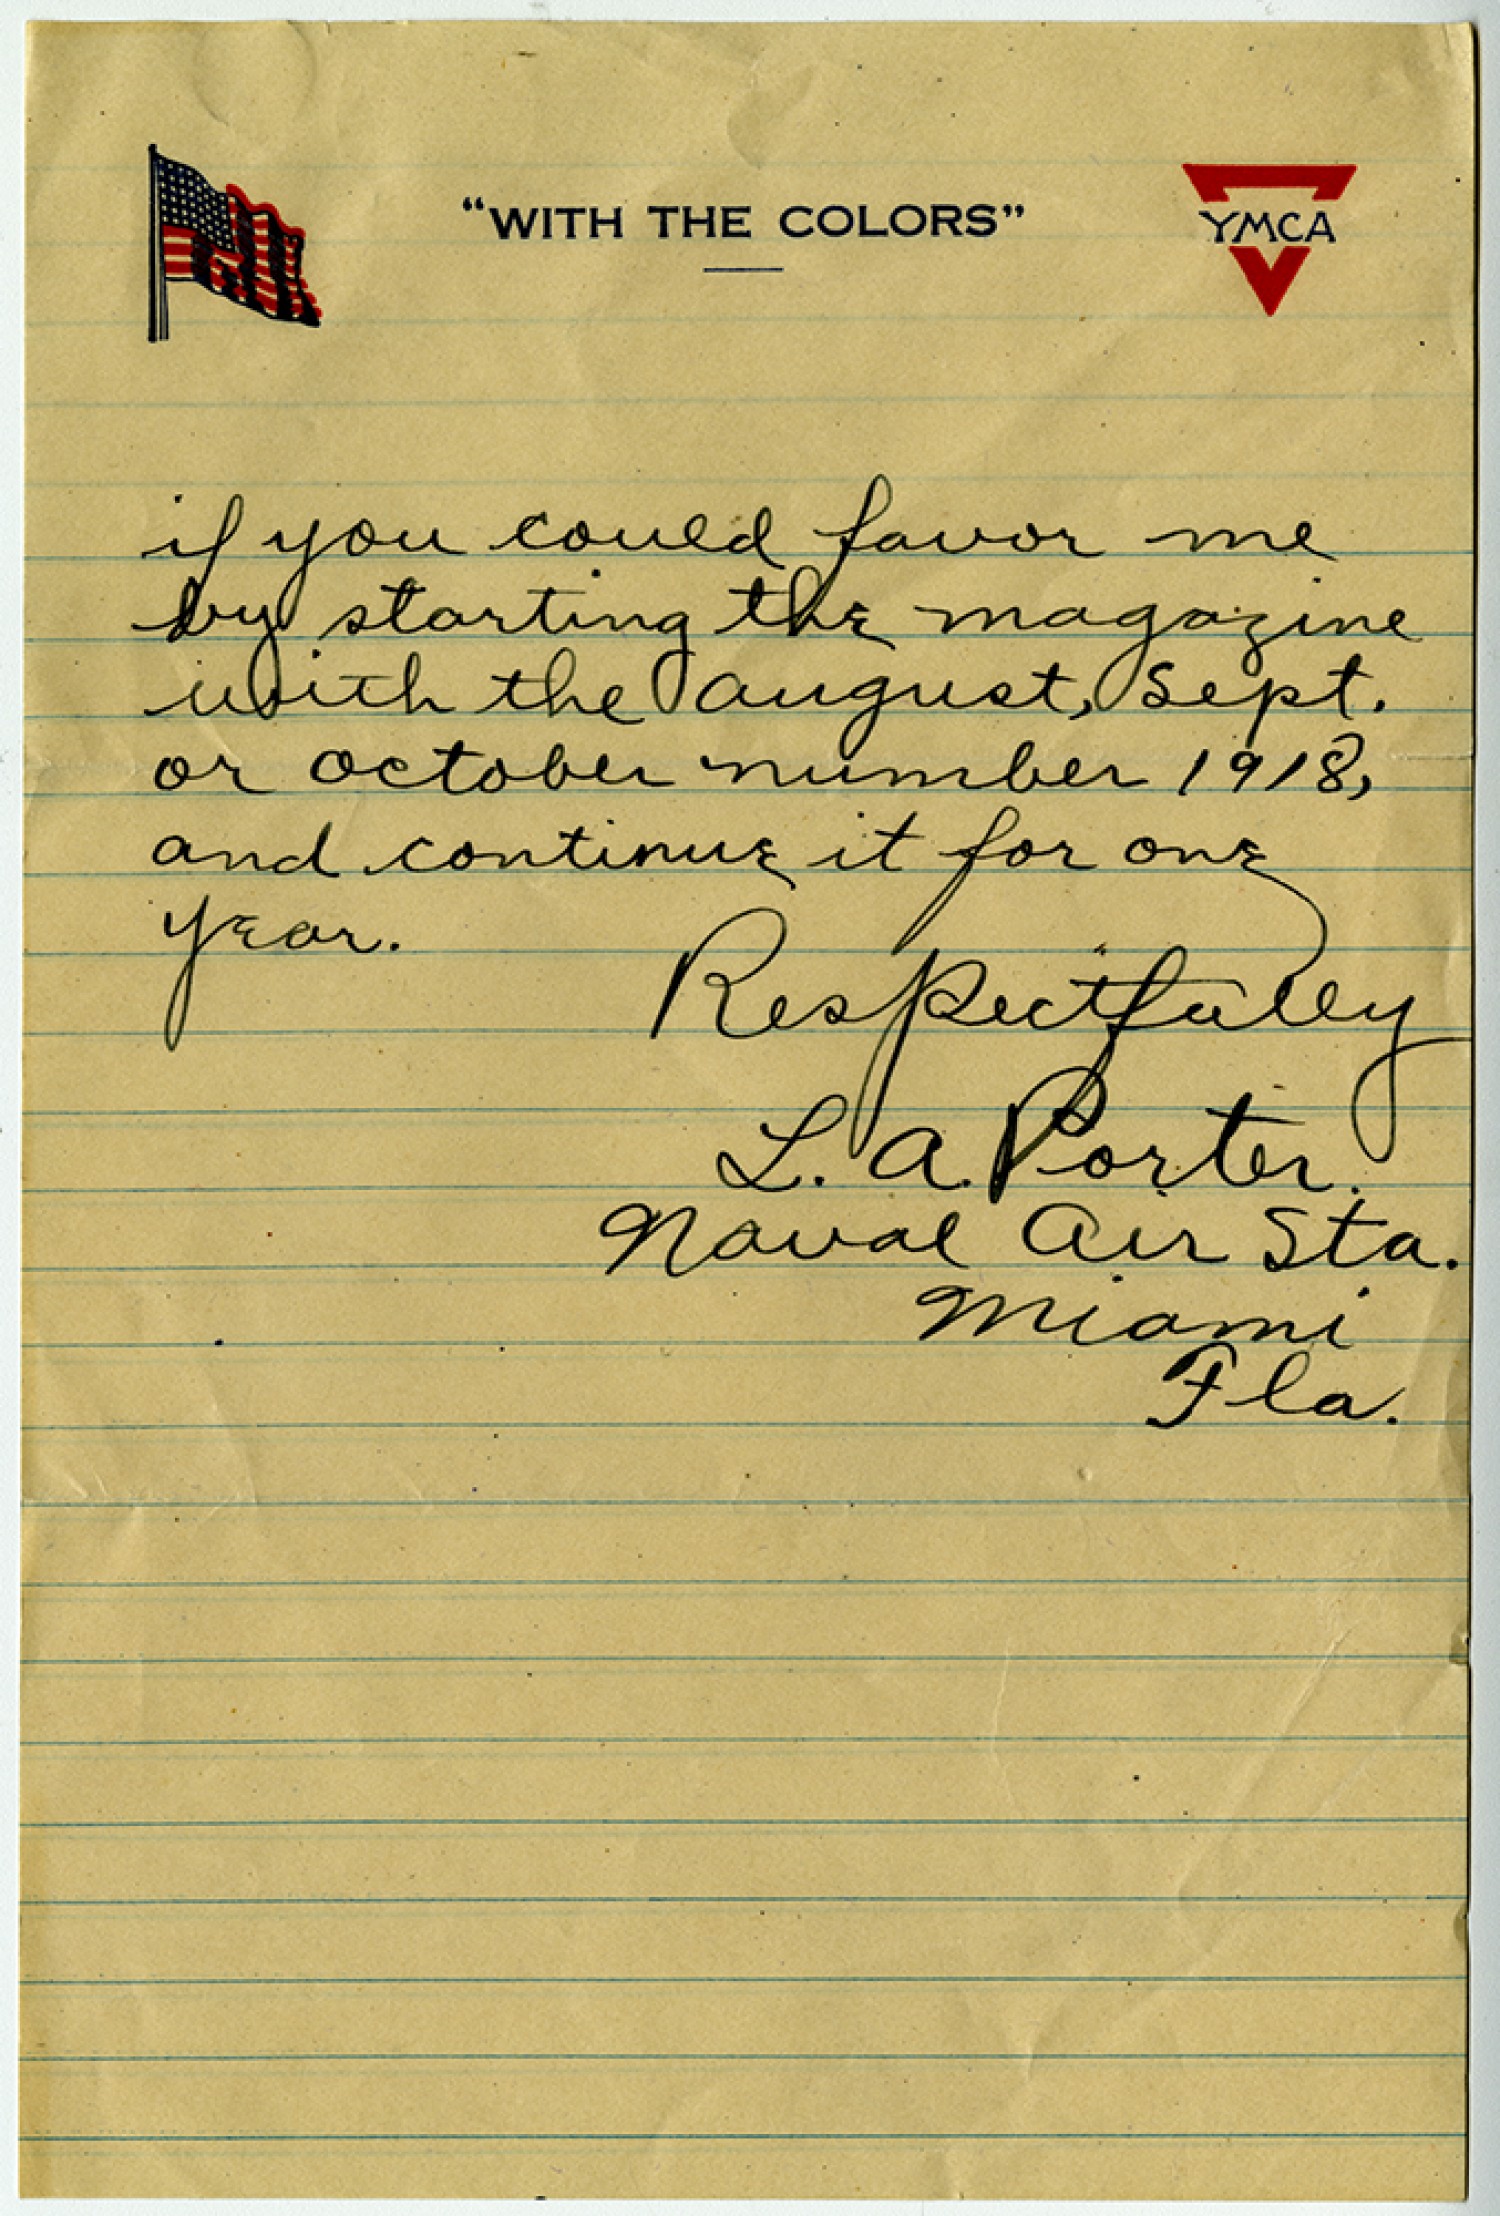 "WITH THE COLORS"
YMCA
if you could favor me
by starting the magazine
with the august, Sept.
or october number 1918,
and continue it for one
year.
Respectfully
L. A. Porter.
Naval Air Sta.
Miami
Fla.